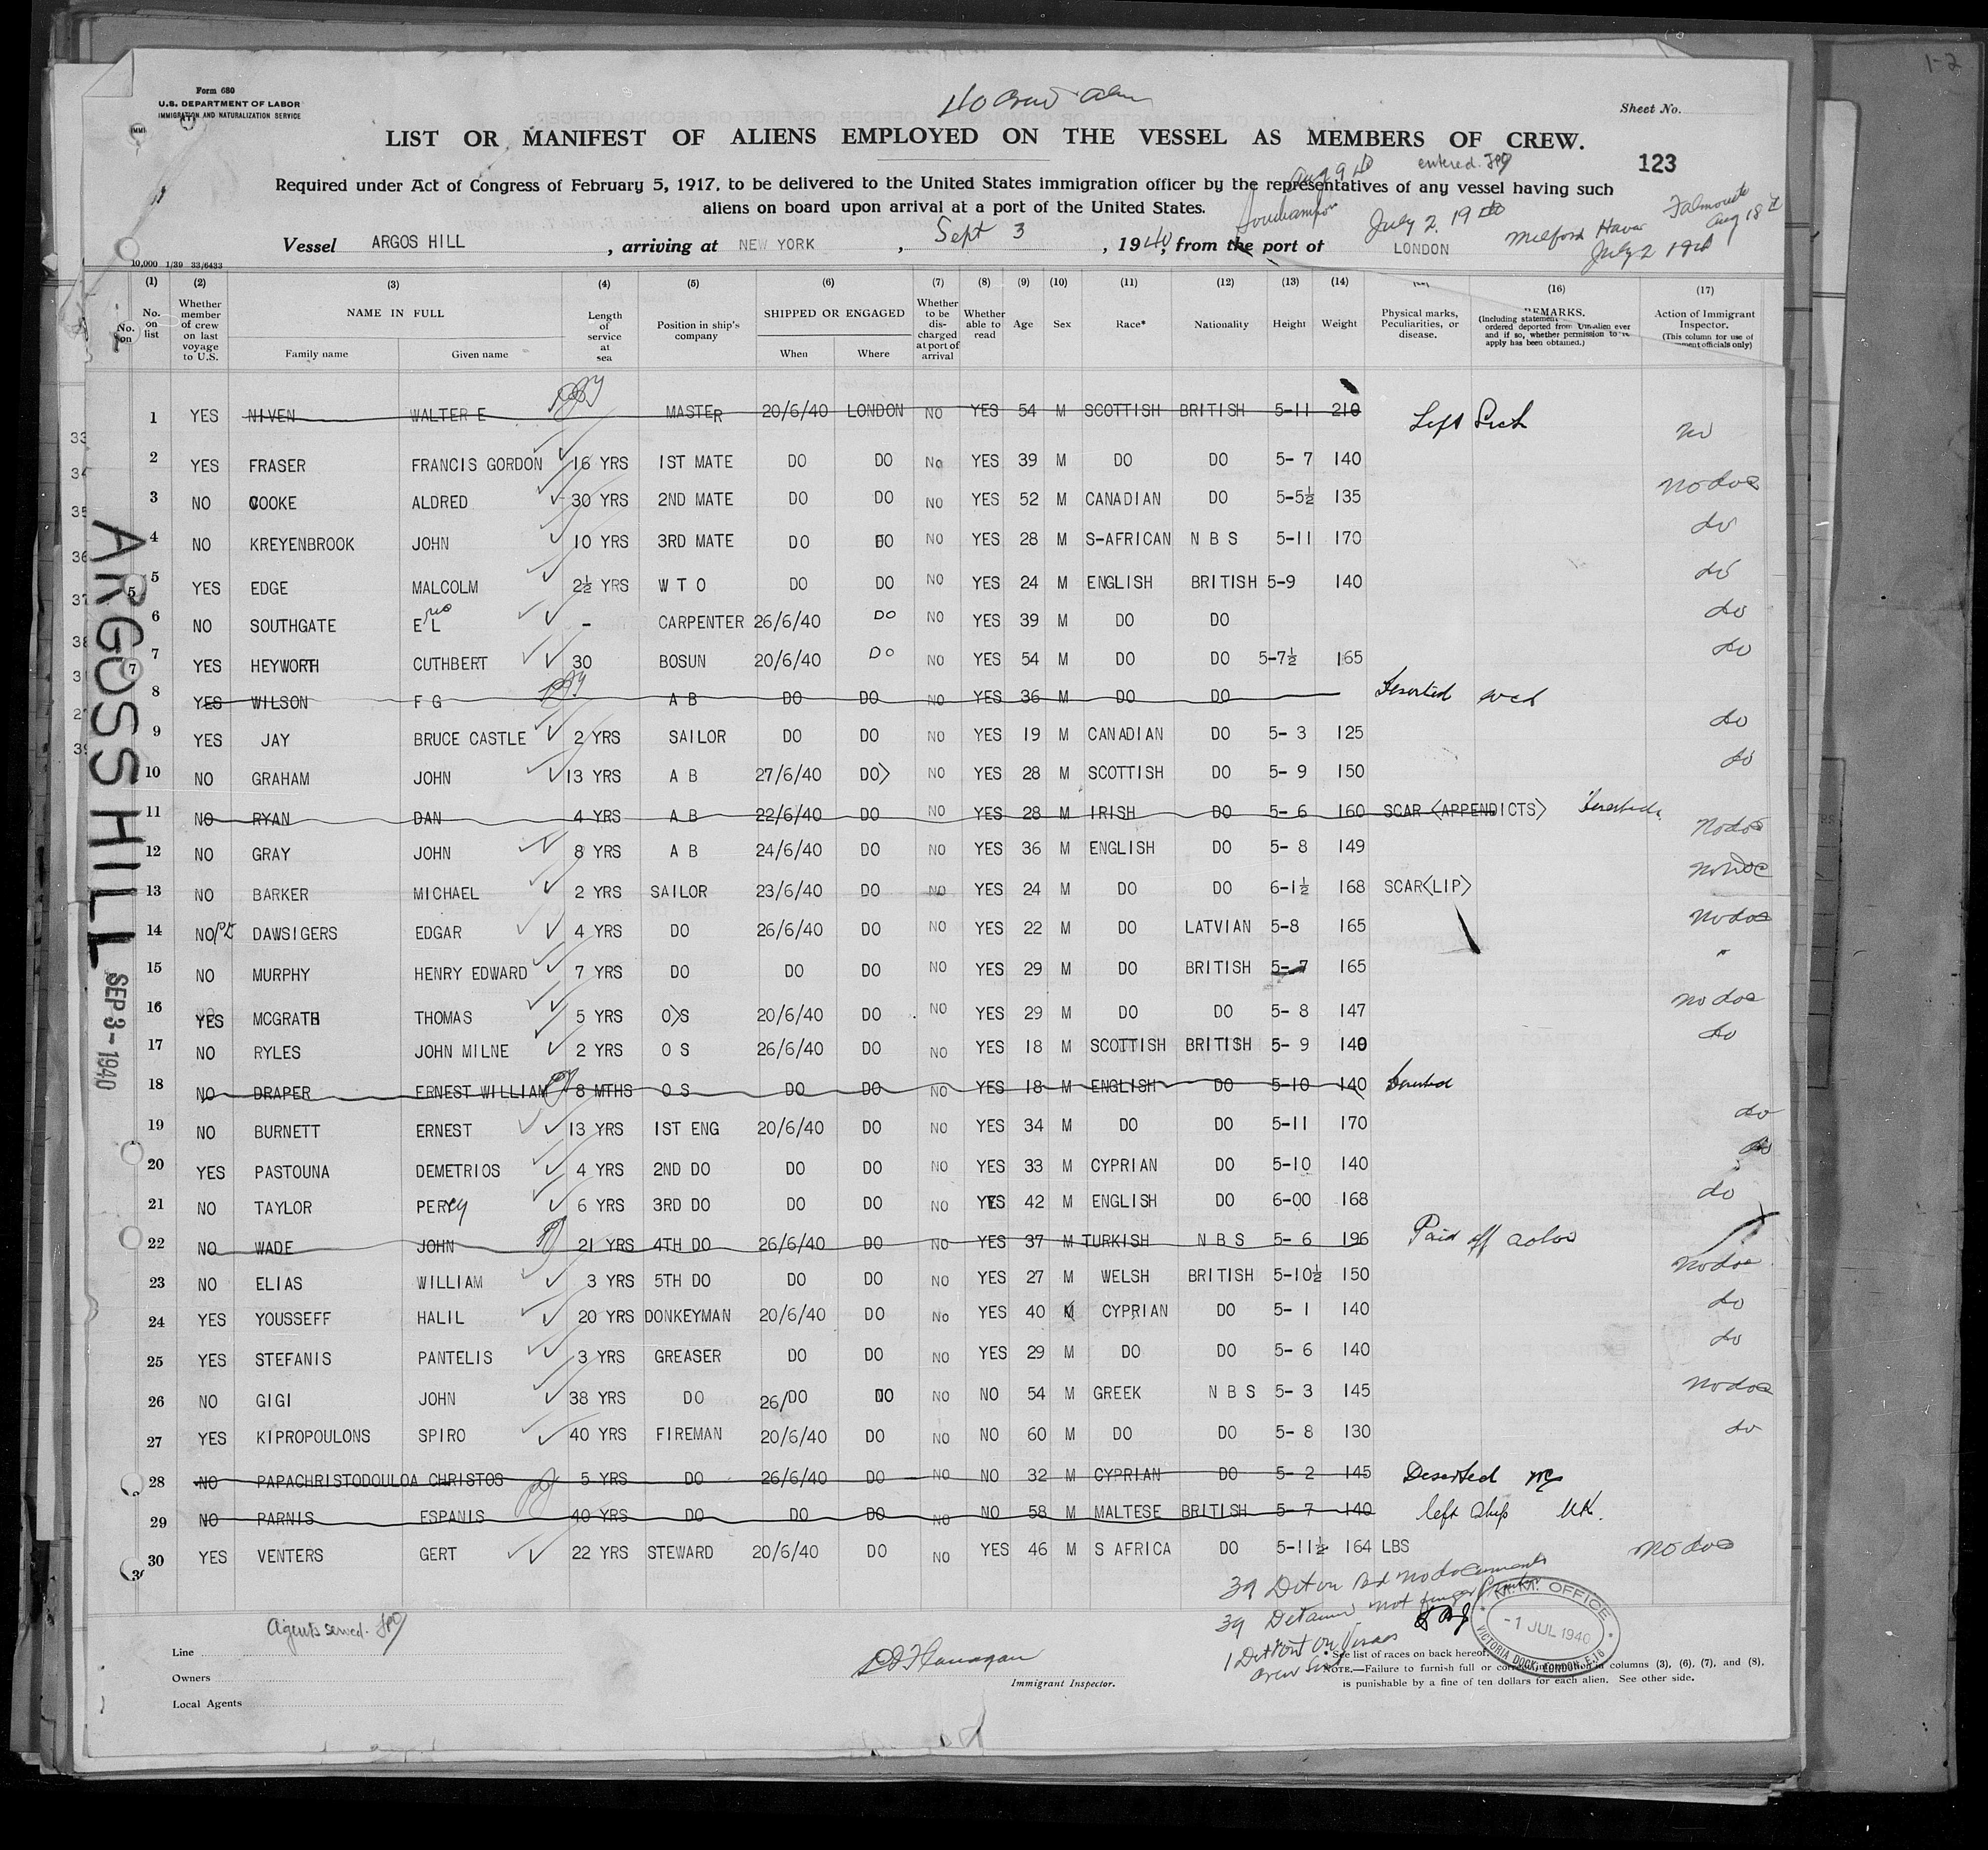 1-2
Form 680
U.S. DEPARTMENT OF LABOR
IMMIGRATION AND NATURALIZATION SERVICE
40 crew alien
Sheet No.
LIST OR MANIFEST OF ALIENS EMPLOYED ON THE VESSEL AS MEMBERS OF CREW.
Aug 9 40 entered.
123
Required under Act of Congress of February 5, 1917, to be delivered to the United States immigration officer by the representatives of any vessel having such
aliens on board upon arrival at a port of the United States.
Southampton July 2, 1940 Milford Haven July 2 1940 Falmouth Aug 18
Vessel ARGOS HILL , arriving at NEW YORK , Sept 3 , 1940, from the port of LONDON
10,000 1/39 33/6433
(1) (2) (3) (4) (5) (6) (7) (8) (9) (10) (11) (12) (13) (14) (16) (17)
No. on list
Whether member of crew on last voyage to U.S.
NAME IN FULL
Family name Given name
Length of service at sea
Position in ship's company
SHIPPED OR ENGAGED
When Where
Whether to be discharged at port of arrival
Whether able to read
Age Sex Race* Nationality Height Weight
Physical marks, Peculiarities, or disease.
REMARKS.
Action of Immigrant Inspector.
1 YES NIVEN WALTER E MASTER 20/6/40 LONDON NO YES 54 M SCOTTISH BRITISH 5-11 210 Left Sick
2 YES FRASER FRANCIS GORDON 16 YRS 1ST MATE DO DO No YES 39 M DO DO 5- 7 140
3 NO COOKE ALDRED 30 YRS 2ND MATE DO DO NO YES 52 M CANADIAN DO 5-5½ 135 no doc
4 NO KREYENBROOK JOHN 10 YRS 3RD MATE DO DO NO YES 28 M S-AFRICAN N B S 5-11 170 do
5 YES EDGE MALCOLM 2½ YRS W T O DO DO NO YES 24 M ENGLISH BRITISH 5-9 140 do
6 NO SOUTHGATE E L - CARPENTER 26/6/40 DO NO YES 39 M DO DO do
7 YES HEYWORTH CUTHBERT 30 BOSUN 20/6/40 DO NO YES 54 M DO DO 5-7½ 165 do
8 YES WILSON F G A B DO DO NO YES 36 M DO DO Deserted
9 YES JAY BRUCE CASTLE 2 YRS SAILOR DO DO NO YES 19 M CANADIAN DO 5- 3 125 do
10 NO GRAHAM JOHN 13 YRS A B 27/6/40 DO> NO YES 28 M SCOTTISH DO 5- 9 150 do
11 NO RYAN DAN 4 YRS A B 22/6/40 DO NO YES 28 M IRISH DO 5- 6 160 SCAR <APPENDICTS> Deserted
12 NO GRAY JOHN 8 YRS A B 24/6/40 DO NO YES 36 M ENGLISH DO 5- 8 149 no doc
13 NO BARKER MICHAEL 2 YRS SAILOR 23/6/40 DO NO YES 24 M DO DO 6-1½ 168 SCAR<LIP> no doc
14 NO DAWSIGERS EDGAR 4 YRS DO 26/6/40 DO NO YES 22 M DO LATVIAN 5-8 165 no doc
15 NO MURPHY HENRY EDWARD 7 YRS DO DO DO NO YES 29 M DO BRITISH 5-7 165 "
16 YES MCGRATH THOMAS 5 YRS O>S 20/6/40 DO NO YES 29 M DO DO 5- 8 147 no doc
17 NO RYLES JOHN MILNE 2 YRS O S 26/6/40 DO NO YES 18 M SCOTTISH BRITISH 5- 9 140 do
18 NO DRAPER ERNEST WILLIAM 8 MTHS O S DO DO NO YES 18 M ENGLISH DO 5-10 140 Deserted
19 NO BURNETT ERNEST 13 YRS 1ST ENG 20/6/40 DO NO YES 34 M DO DO 5-11 170 do
20 YES PASTOUNA DEMETRIOS 4 YRS 2ND DO DO DO NO YES 33 M CYPRIAN DO 5-10 140 do
21 NO TAYLOR PERCY 6 YRS 3RD DO DO DO NO YES 42 M ENGLISH DO 6-00 168 do
22 NO WADE JOHN 21 YRS 4TH DO 26/6/40 DO NO YES 37 M TURKISH N B S 5- 6 196 Paid off
23 NO ELIAS WILLIAM 3 YRS 5TH DO DO DO NO YES 27 M WELSH BRITISH 5-10½ 150 no doc
24 YES YOUSSEFF HALIL 20 YRS DONKEYMAN 20/6/40 DO No YES 40 M CYPRIAN DO 5- 1 140 do
25 YES STEFANIS PANTELIS 3 YRS GREASER DO DO NO YES 29 M DO DO 5- 6 140 do
26 NO GIGI JOHN 38 YRS DO 26/DO DO NO NO 54 M GREEK N B S 5- 3 145 no doc
27 YES KIPROPOULONS SPIRO 40 YRS FIREMAN 20/6/40 DO NO NO 60 M DO DO 5- 8 130 do
28 NO PAPACHRISTODOULOA CHRISTOS 5 YRS DO 26/6/40 DO NO NO 32 M CYPRIAN DO 5- 2 145 Deserted
29 NO PARNIS ESPANIS 40 YRS DO DO DO NO NO 58 M MALTESE BRITISH 5- 7 140 left Ship UK.
30 YES VENTERS GERT 22 YRS STEWARD 20/6/40 DO NO YES 46 M S AFRICA DO 5-11½ 164 LBS no doc
ARGOSS HILL
SEP 3 - 1940
39 Det on no documents
39 Detained not finger
M.M. OFFICE
-1 JUL 1940
VICTORIA DOCK, LONDON, E.16
Agents served.
Line
Owners
Local Agents
Immigrant Inspector.
*See list of races on back hereof.
NOTE.—Failure to furnish full or correct information in columns (3), (6), (7), and (8),
is punishable by a fine of ten dollars for each alien. See other side.